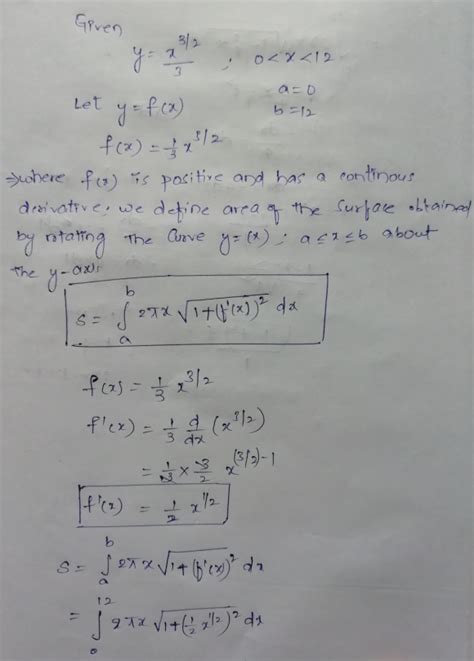 Given
y = x^{3/2}/3 ; 0<x<12
a=0
Let y=f(x) b=12
f(x) = 1/3 x^{3/2}
⇒where f(x) is positive and has a continous
derivative; we define area of the surface obtained
by rotating the curve y=(x); a≤x≤b about
the y-axis
S = ∫_a^b 2πx √(1+(f'(x))^2) dx
f(x) = 1/3 x^{3/2}
f'(x) = 1/3 d/dx (x^{3/2})
= 1/3 × 3/2 x^{(3/2)-1}
f'(x) = 1/2 x^{1/2}
S = ∫_a^b 2πx √(1+(f'(x))^2) dx
= ∫_0^12 2πx √(1+(1/2 x^{1/2})^2) dx